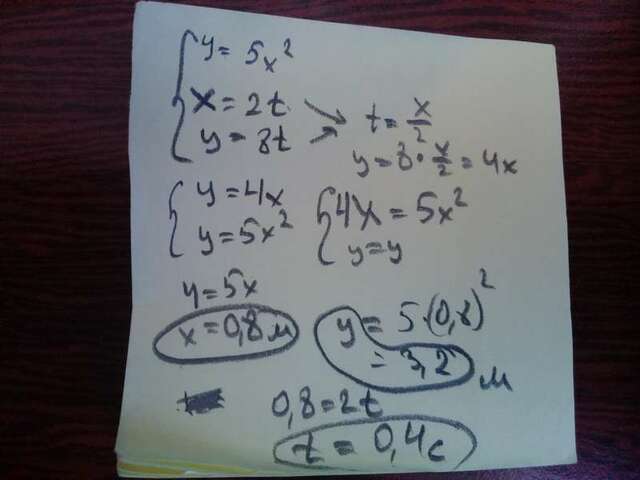 y = 5x²
x = 2t
y = 8t
t = x/2
y = 8 · x/2 = 4x
y = 4x
y = 5x²
4x = 5x²
y = y
4 = 5x
x = 0,8 м
y = 5·(0,8)²
= 3,2 м
0,8 = 2t
t = 0,4 с